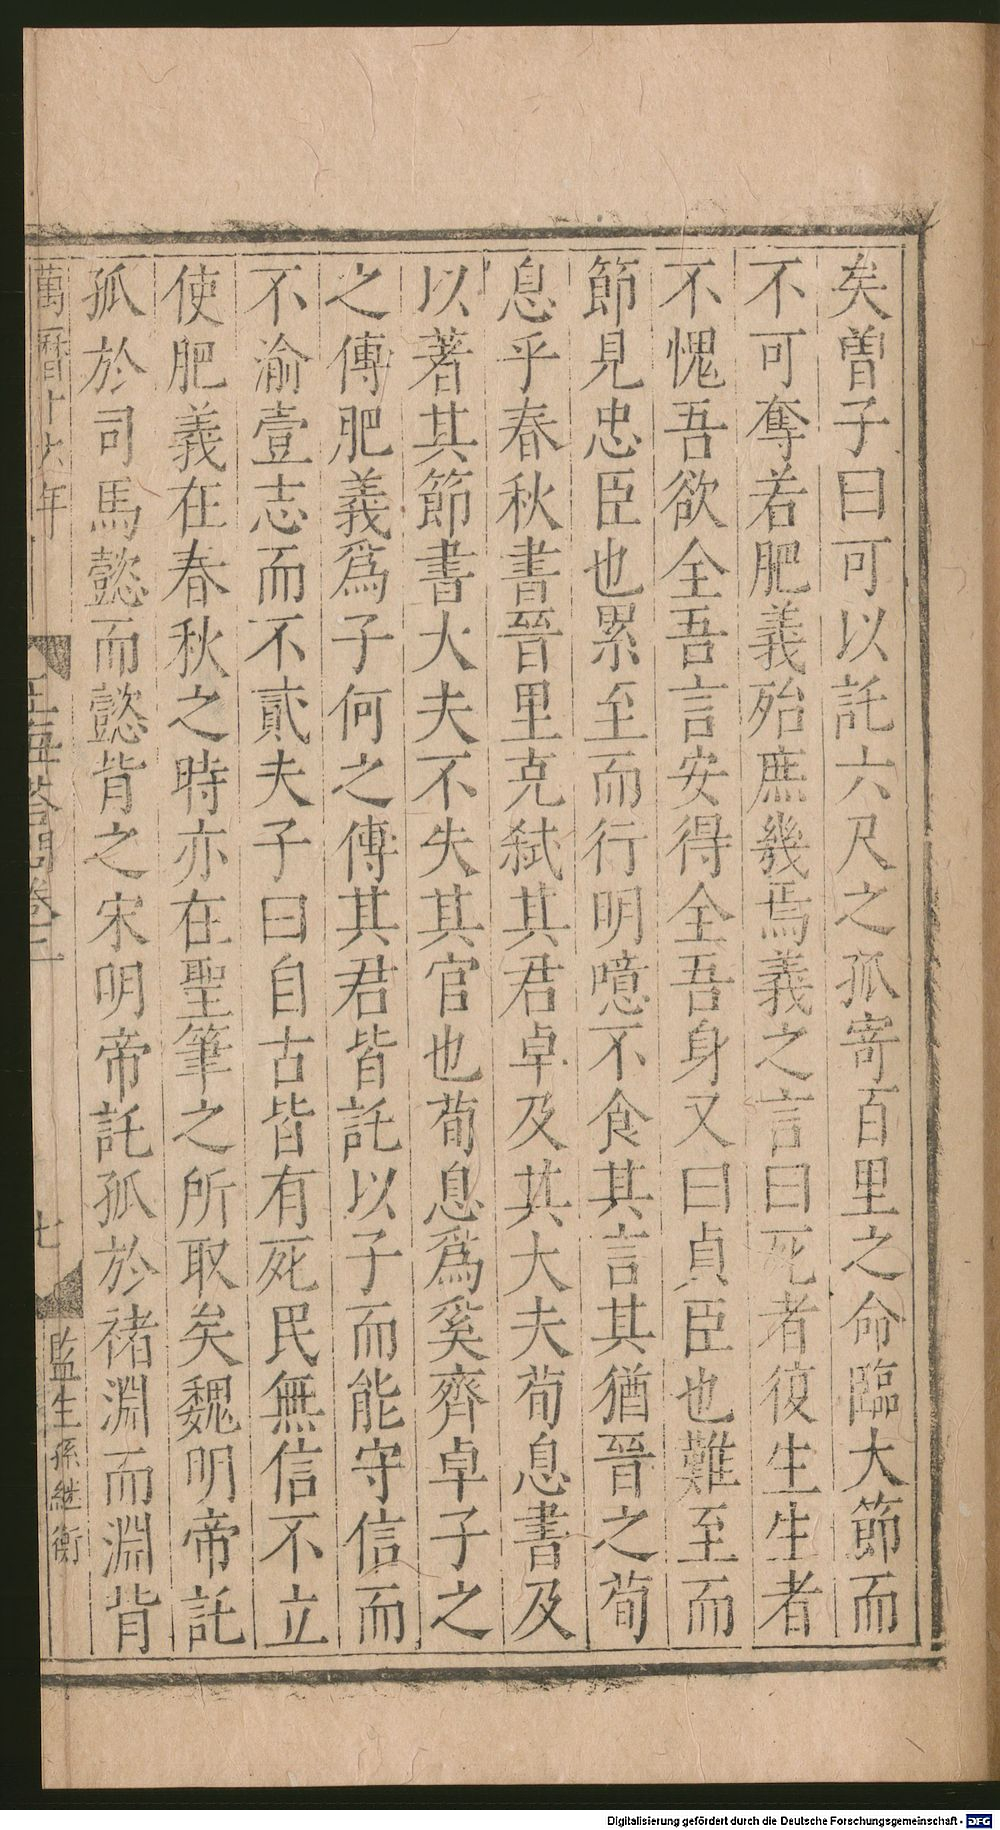 矣曽子曰可以託六尺之孤寄百里之命臨大節而
不可奪若肥義殆庶幾焉義之言曰死者復生生者
不愧吾欲全吾言安得全吾身又曰貞臣也難至而
節見忠臣也累至而行明噫不食其言其猶晉之荀
息乎春秋書晉里克弑其君卓及其大夫荀息書及
以著其節書大夫不失其官也荀息爲奚齊卓子之
之傳肥義爲子何之傳其君皆託以子而能守信而
不渝壹志而不貳夫子曰自古皆有死民無信不立
使肥義在春秋之時亦在聖筆之所取矣魏明帝託
孤於司馬懿而懿背之宋明帝託孤於禇淵而淵背
萬曆十六年刊
答問卷二
七
監生孫継衡
Digitalisierung gefördert durch die Deutsche Forschungsgemeinschaft - DFG